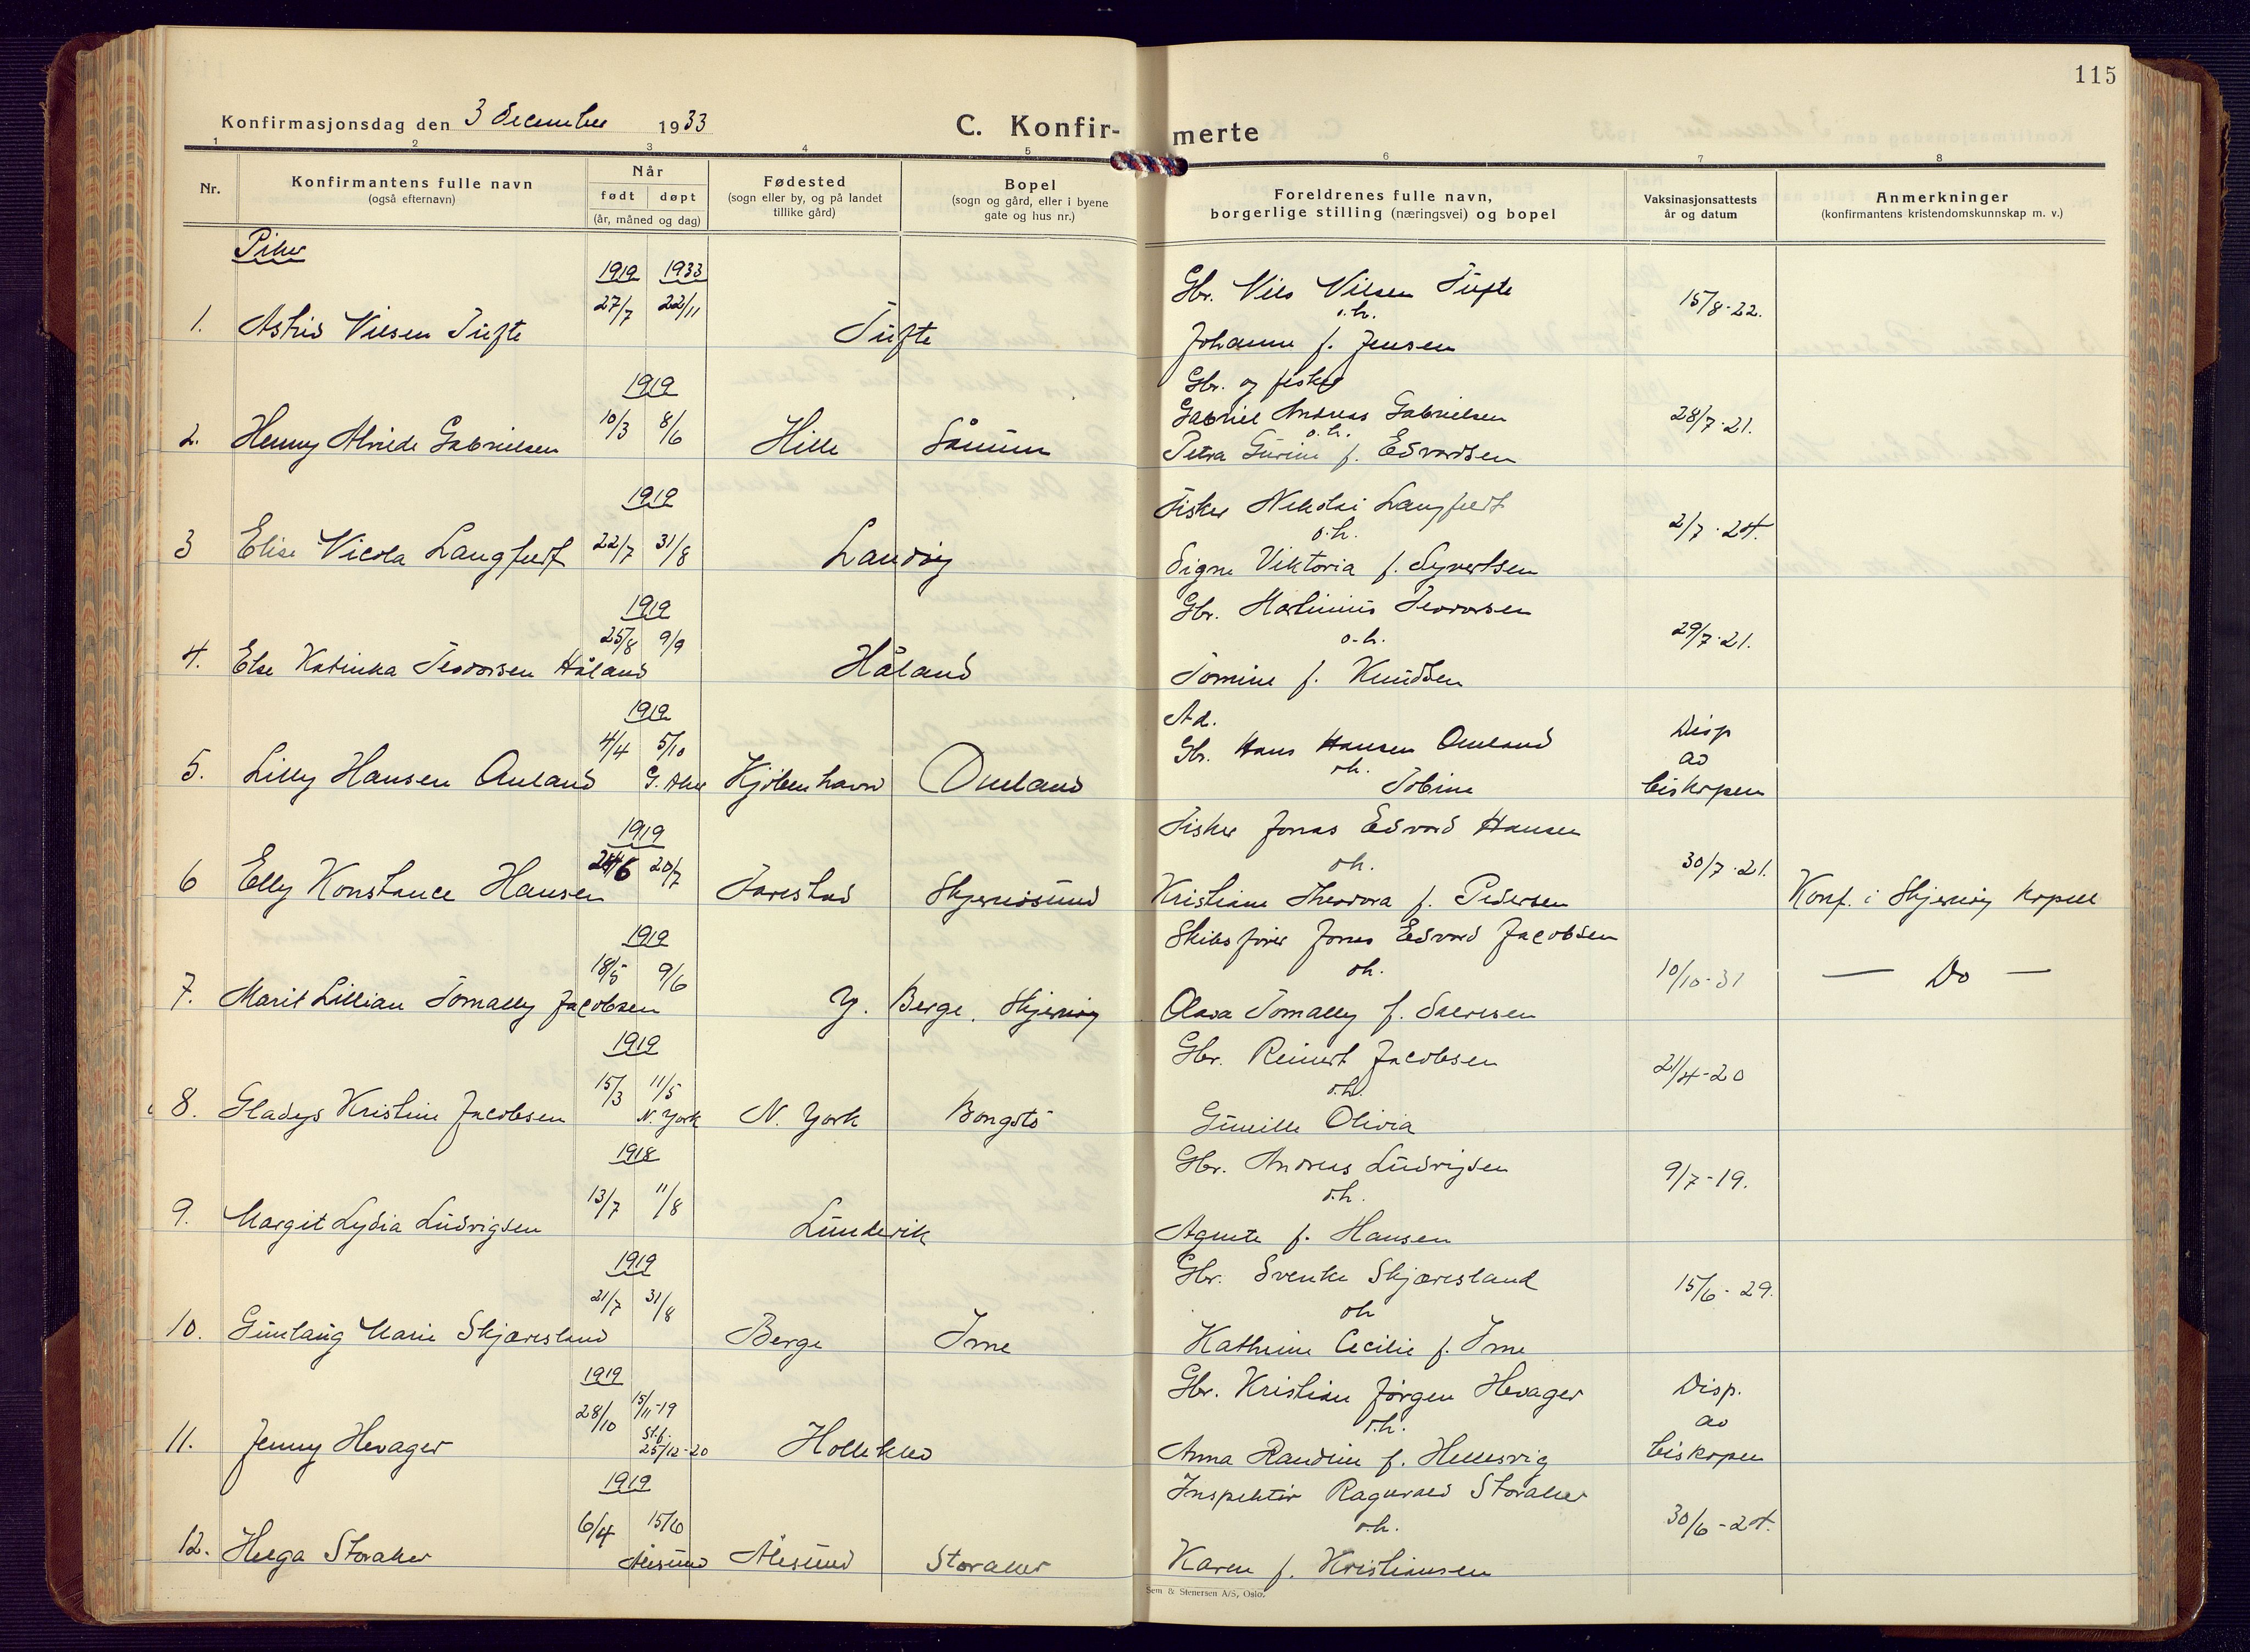 115
Konfirmasjonsdag den 3 December 1933
C. Konfir- merte
1 2 3 4 5 6 7 8
Nr.
Konfirmantens fulle navn
(også efternavn)
Når
født døpt
(år, måned og dag)
Fødested
(sogn eller by, og på landet
tillike gård)
Bopel
(sogn og gård, eller i byene
gate og hus nr.)
Foreldrenes fulle navn,
borgerlige stilling (næringsvei) og bopel
Vaksinasjonsattests
år og datum
Anmerkninger
(konfirmantens kristendomskunnskap m. v.)
Piker
1919 1933
27/7 22/11
1. Astrid Nilsen Tufte
Tufte
Gbr. Nils Nilsen Tufte
o.h.
Johanne f. Jensen
15/8-22.
1919
10/3 8/6
2. Henny Alvide Gabrielsen
Hille Sånum
Gbr. og fisker
Gabriel Andreas Gabrielsen
o.h.
Petra Gurine f. Edvardsen
28/7-21.
1919
22/7 31/8
3 Elise Nicola Langfeldt
Landøy
Fisker Nikolai Langfeldt
o.h.
Signe Viktoria f. Syvertsen
2/7-24.
1919
25/8 9/9
4. Else Katinka Teodorsen Håland
Håland
Gbr. Martinius Teodorsen
o.h.
Tomine f. Knudsen
29/7-21.
1919
4/4 5/10
5. Lilly Hansen Omland
G. Aker Kjøbenhavn Omland
Ad.
Gbr. Hans Hansen Omland
oh.
Tobine
Disp
av
biskopen
1919
6 20/7
6 Elly Konstance Hansen
Tarestad Skjernøsund
Fisker Jonas Edvard Hansen
oh.
Kristiane Theodora f. Pedersen
30/7-21.
Konf. i Skjernøy kapell
1919
18/5 9/6
7. Marit Lillian Tomally Jacobsen
Y. Berge, Skjernøy
Skibsfører Jonas Edvard Jacobsen
oh.
Olava Tomally f. Salvesen
10/10-31
— Do —
1919
15/3 11/5
8. Gladys Kristine Jacobsen
N. York N. York Bongstø
Gbr. Reinert Jacobsen
o.h.
Gunille Olivia
21/4-20
1918
13/7 11/8
9. Margit Lydia Ludvigsen
Lundevik
Gbr. Andreas Ludvigsen
o.h.
Agnete f. Hansen
9/7-19.
1919
21/7 31/8
10. Gunlaug Marie Skjæresland
Berge Ime
Gbr. Svenke Skjæresland
oh
Kathrine Cecilie f. Ime
15/6-29.
1919
28/10 15/11-19
St.f.
25/12-20
11. Jenny Hevager
Holleklev
Gbr. Kristian Jørgen Hevager
o.h.
Anna Randine f. Hellesvig
Disp.
av
biskopen
1919
6/4 15/6
12. Helga Storaker
Ålesund Ålesund Storaker
Inspektør Ragnvald Storaker
o.h.
Karen f. Kristiansen
30/6-24.
Sem & Stenersen A/S, Oslo.